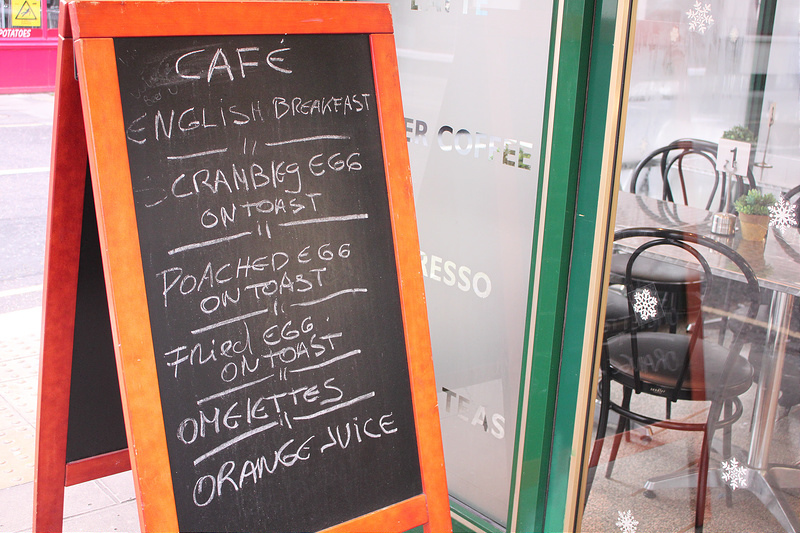 POTATOES
CAFÉ
ENGLISH BREAKFAST
SCRAMBLEg EGG
ON TOAST
POACHED EGG
ON TOAST
FRIED EGG
ON TOAST
OMELETTES
ORANGE JUICE
COFFEE
TEAS
1